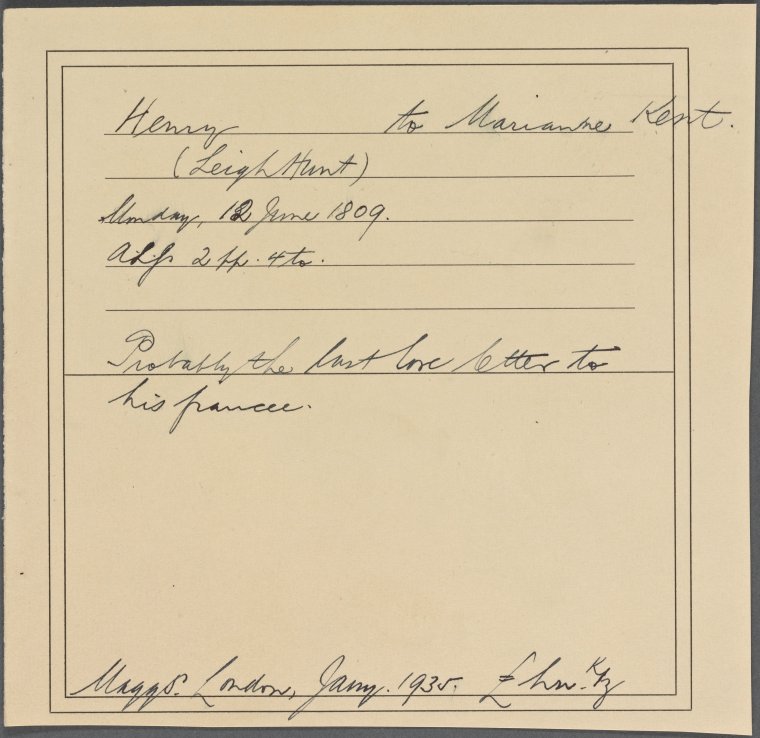 Henry to Marianne Kent.
(Leigh Hunt)
Monday, 12 June 1809.
ALS 2 pp. 4to.
Probably the last love letter to
his fiancee.
Maggs. London, Jany. 1935. £